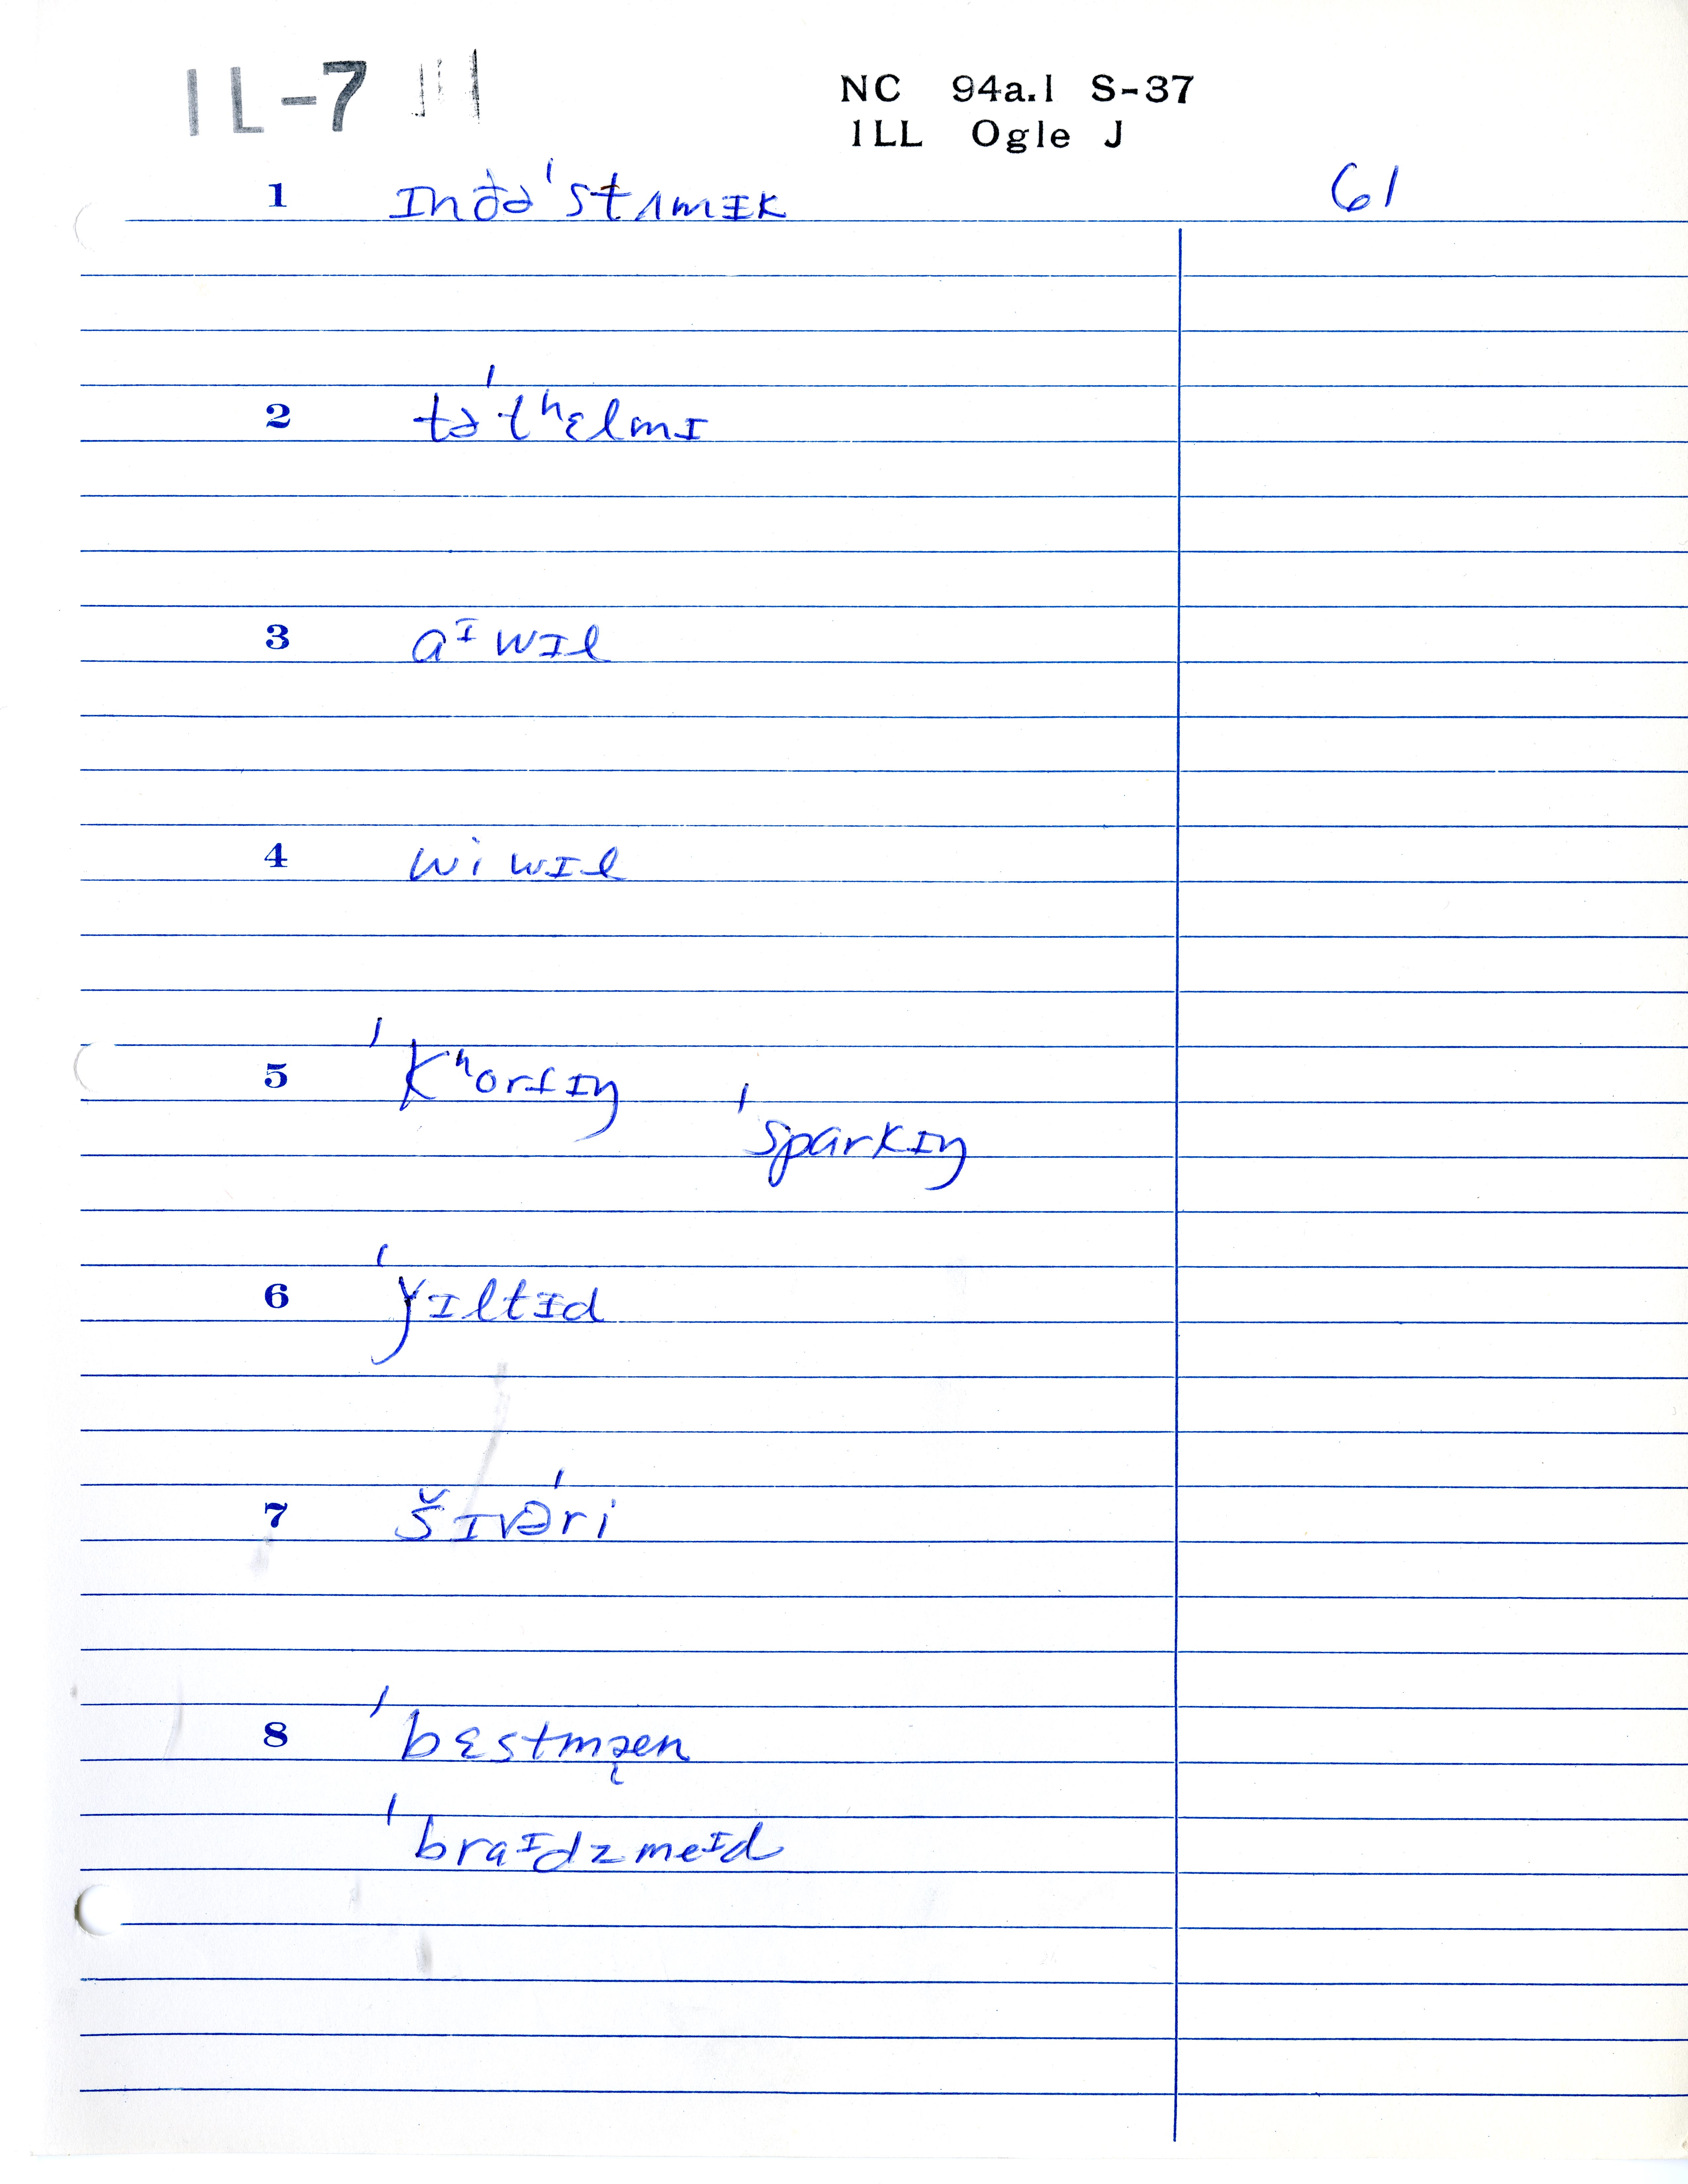 IL-7
NC 94a.1 S-37
ILL Ogle J
61
1 ɪnðə'stʌmɪk
2 tə'tʰɛlmɪ
3 aᶦwɪl
4 wiwɪl
5 'kʰorfɪŋ 'sparkɪŋ
6 'yɪltɪd
7 šɪvə'ri
8 'bɛstmæ̨n
'braᶦdzmeᶦd